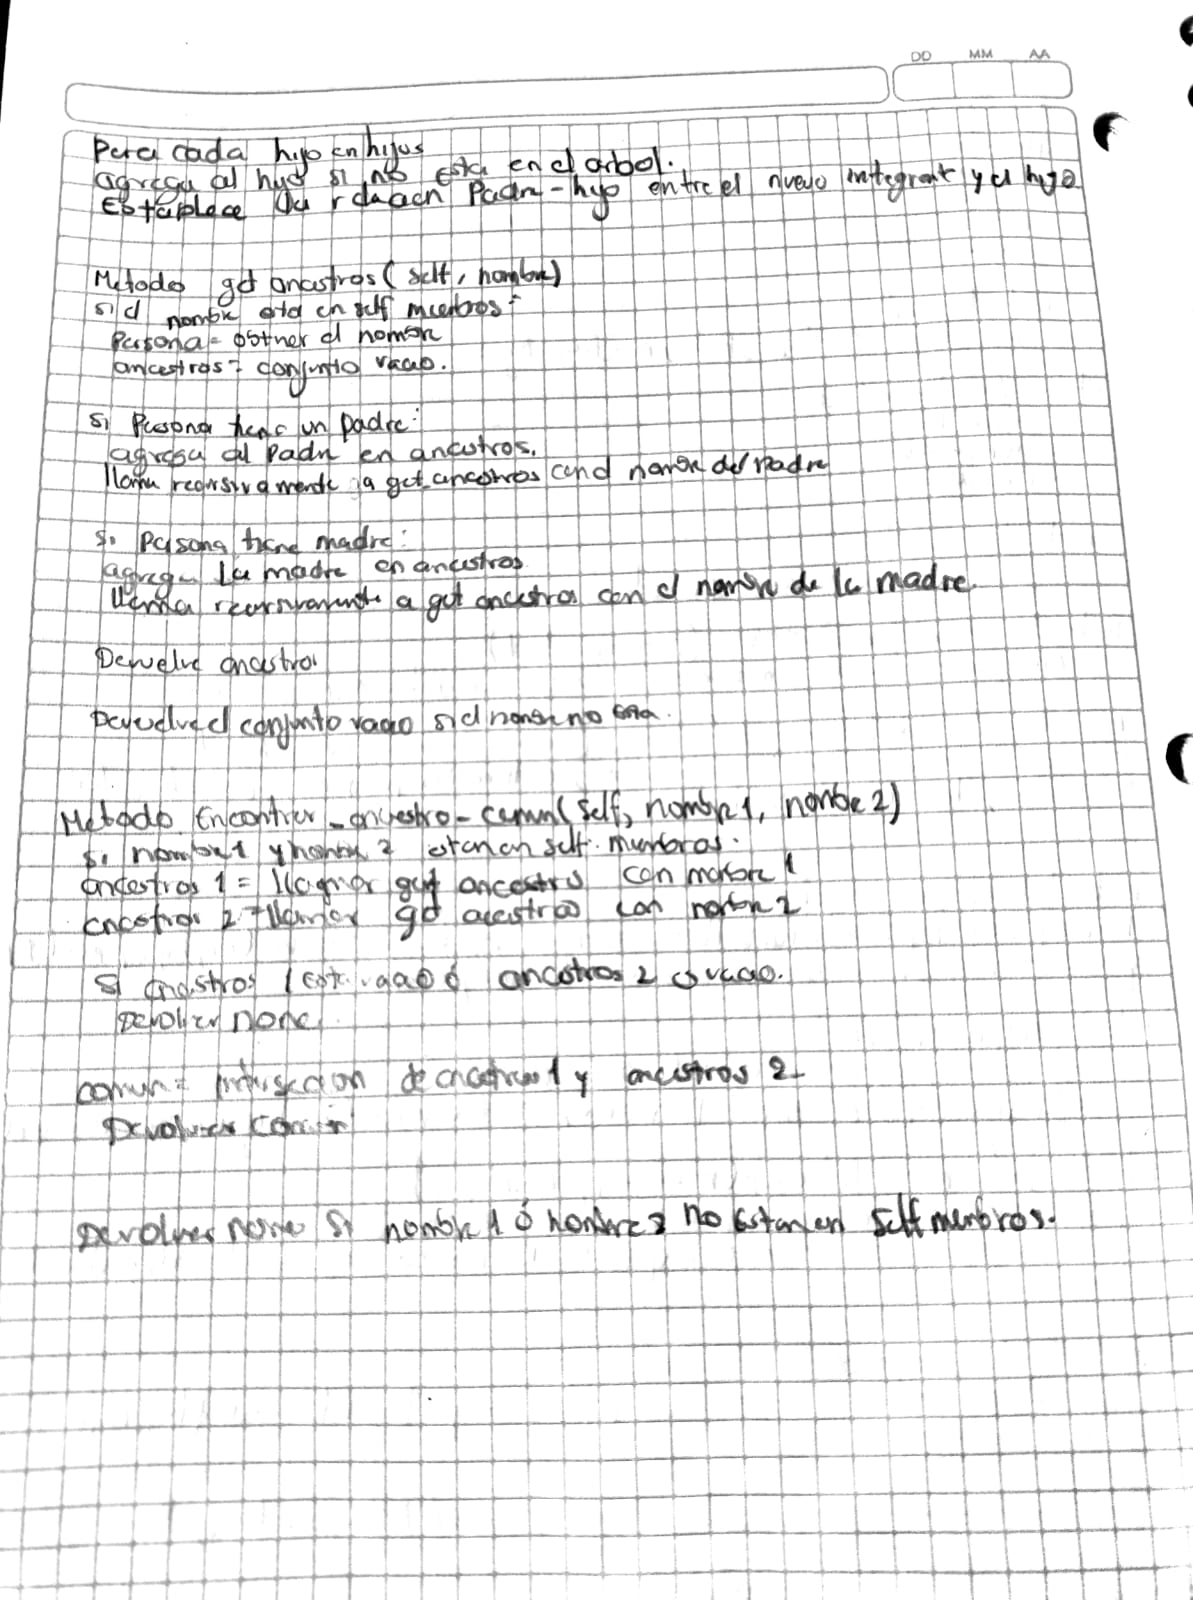 DD MM AA
Para cada hijo en hijos
agrega al hijo si no esta en el arbol.
Establece la relacion Padre-hijo entre el nuevo integrante y el hijo
Metodo get ancestros (self, nombre)
si el nombre esta en self miembros:
Persona = obtner el nombre
ancestros = conjunto vacio.
Si Persona tiene un padre:
agrega al Padre en ancestros.
llama recursivamente a get_ancestros con el nombre del Padre
Si Persona tiene madre:
agrega La madre en ancestros
llama recursivamente a get ancestros con el nombre de la madre.
Devuelve ancestros
Devuelve el conjunto vacio si el nombre no esta.
Metodo Encontrar_ancestro_comun(self, nombre 1, nombre 2)
Si nombre 1 y nombre 2 estan en self. miembros.
ancestros 1 = llamar get ancestros con nombre 1
ancestros 2 = llamar get ancestros con nombre 2
Si ancestros 1 esta vacio ó ancestros 2 es vacio.
Devolver none.
comun = interseccion de ancestros 1 y ancestros 2
Devolver comun
Devolver none Si nombre 1 ó nombre 2 no Estan en self miembros.